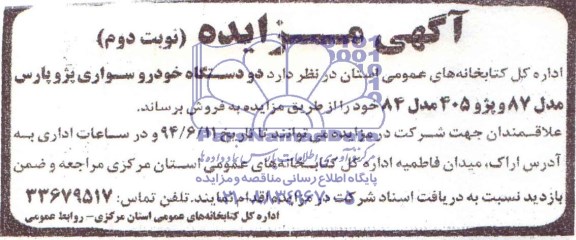 آگهی مزایده (نوبت دوم)
اداره کل کتابخانه‌های عمومی استان در نظر دارد دو دستگاه خودرو سواری پژو پارس
مدل ۸۷ و پژو ۴۰۵ مدل ۸۴ خود را از طریق مزایده به فروش برساند.
علاقمندان جهت شرکت در مزایده می توانند تا تاریخ ۹۴/۶/۱۱ و در ساعات اداری به
آدرس اراک، میدان فاطمیه اداره کل کتابخانه‌های عمومی استان مرکزی مراجعه و ضمن
پایگاه اطلاع رسانی مناقصه و مزایده
بازدید نسبت به دریافت اسناد شرکت در مزایده اقدام نمایند. تلفن تماس: ۳۳۶۷۹۵۱۷
اداره کل کتابخانه‌های عمومی استان مرکزی- روابط عمومی